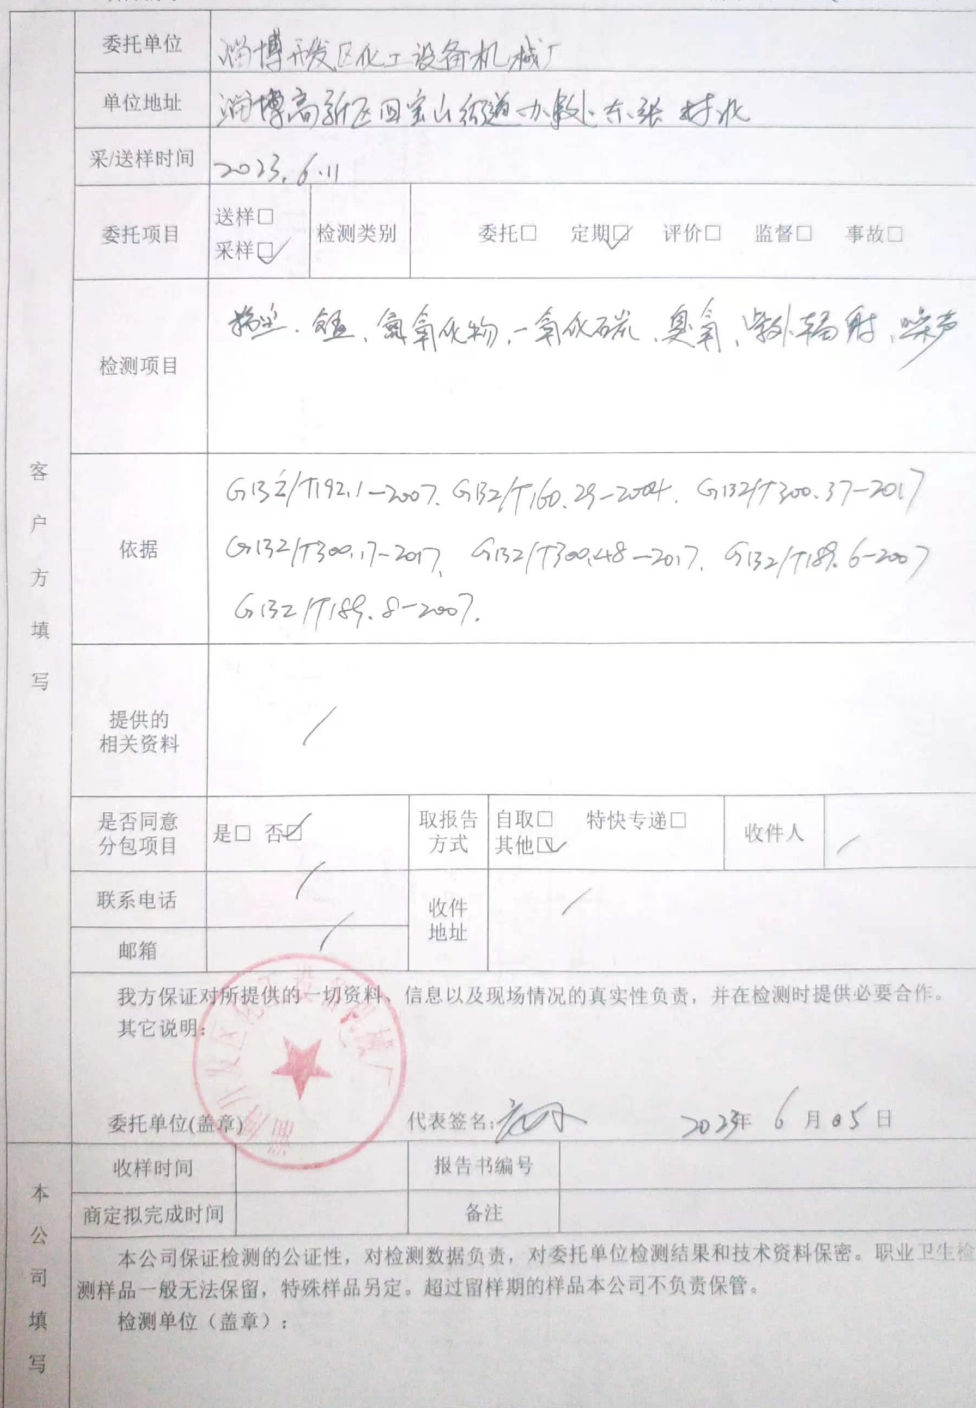 委托单位 淄博开发区化工设备机械厂
单位地址 淄博高新区四宝山街道办事处东张村北
采/送样时间 2023.6.11
委托项目 送样□ 采样☑ 检测类别 委托□ 定期☑ 评价□ 监督□ 事故□
检测项目 粉尘、锰、氮氧化物、一氧化碳、臭氧、紫外辐射、噪声
客户方填写
依据 GBZ/T192.1-2007. GBZ/T160.29-2004. GBZ/T300.37-2017
GBZ/T300.17-2017. GBZ/T300.48-2017. GBZ/T189.6-2007
GBZ/T189.8-2007.
提供的
相关资料 /
是否同意
分包项目 是□ 否☑ 取报告
方式 自取□ 特快专递□
其他☑ 收件人 /
联系电话 / 收件
地址 /
邮箱 /
我方保证对所提供的一切资料、信息以及现场情况的真实性负责，并在检测时提供必要合作。
其它说明：
淄博开发区化工设备机械厂
委托单位(盖章) 代表签名: 2023年 6 月 05 日
本公司填写
收样时间 报告书编号
商定拟完成时间 备注
本公司保证检测的公证性，对检测数据负责，对委托单位检测结果和技术资料保密。职业卫生检
测样品一般无法保留，特殊样品另定。超过留样期的样品本公司不负责保管。
检测单位（盖章）：